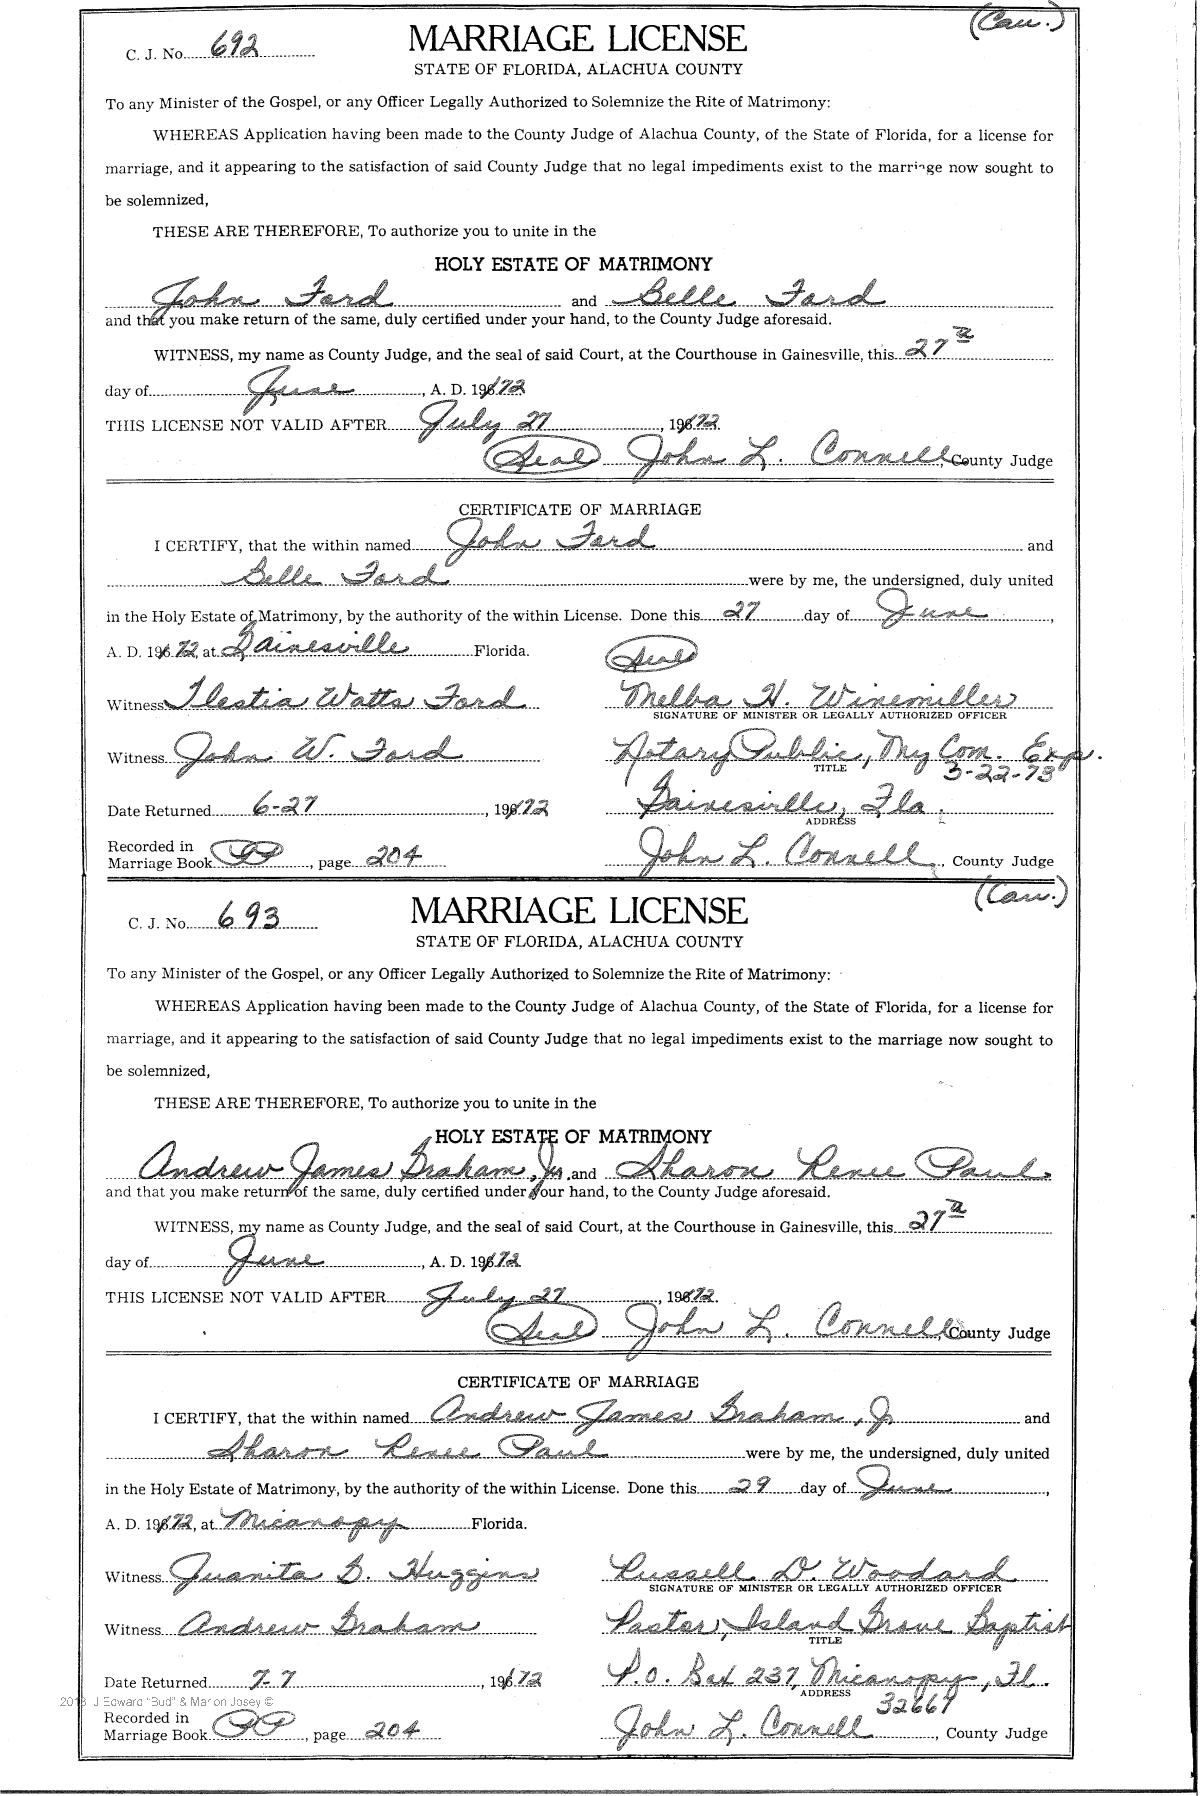 (Cau.)
C. J. No. 692 MARRIAGE LICENSE
STATE OF FLORIDA, ALACHUA COUNTY
To any Minister of the Gospel, or any Officer Legally Authorized to Solemnize the Rite of Matrimony:
WHEREAS Application having been made to the County Judge of Alachua County, of the State of Florida, for a license for
marriage, and it appearing to the satisfaction of said County Judge that no legal impediments exist to the marriage now sought to
be solemnized,
THESE ARE THEREFORE, To authorize you to unite in the
HOLY ESTATE OF MATRIMONY
John Ford and Belle Ford
and that you make return of the same, duly certified under your hand, to the County Judge aforesaid.
WITNESS, my name as County Judge, and the seal of said Court, at the Courthouse in Gainesville, this 27th
day of June, A. D. 1972
THIS LICENSE NOT VALID AFTER July 27, 1972.
(Seal) John L. Connell, County Judge
CERTIFICATE OF MARRIAGE
I CERTIFY, that the within named John Ford and
Belle Ford were by me, the undersigned, duly united
in the Holy Estate of Matrimony, by the authority of the within License. Done this 27 day of June,
A. D. 1972, at Gainesville Florida. (Seal)
Witness Ilestia Watts Ford Melba H. Winemiller
SIGNATURE OF MINISTER OR LEGALLY AUTHORIZED OFFICER
Witness John W. Ford Notary Public, My Com. Exp.
TITLE 3-22-73
Date Returned 6-27, 1972 Gainesville, Fla.
ADDRESS
Recorded in
Marriage Book PP, page 204 John L. Connell, County Judge
(Cau.)
C. J. No. 693 MARRIAGE LICENSE
STATE OF FLORIDA, ALACHUA COUNTY
To any Minister of the Gospel, or any Officer Legally Authorized to Solemnize the Rite of Matrimony:
WHEREAS Application having been made to the County Judge of Alachua County, of the State of Florida, for a license for
marriage, and it appearing to the satisfaction of said County Judge that no legal impediments exist to the marriage now sought to
be solemnized,
THESE ARE THEREFORE, To authorize you to unite in the
HOLY ESTATE OF MATRIMONY
Andrew James Graham, Jr. and Sharon Renee Paul
and that you make return of the same, duly certified under your hand, to the County Judge aforesaid.
WITNESS, my name as County Judge, and the seal of said Court, at the Courthouse in Gainesville, this 27th
day of June, A. D. 1972
THIS LICENSE NOT VALID AFTER July 27, 1972.
(Seal) John L. Connell, County Judge
CERTIFICATE OF MARRIAGE
I CERTIFY, that the within named Andrew James Graham, Jr and
Sharon Renee Paul were by me, the undersigned, duly united
in the Holy Estate of Matrimony, by the authority of the within License. Done this 29 day of June,
A. D. 1972, at Micanopy Florida.
Witness Juanita B. Huggins Russell D. Woodard
SIGNATURE OF MINISTER OR LEGALLY AUTHORIZED OFFICER
Witness Andrew Graham Pastor, Island Grove Baptist
TITLE
Date Returned 7-7, 1972 P.O. Box 237, Micanopy, Fl.
ADDRESS 32667
2013 J Edward "Bud" & Marion Josey ©
Recorded in
Marriage Book PP, page 204 John L. Connell, County Judge